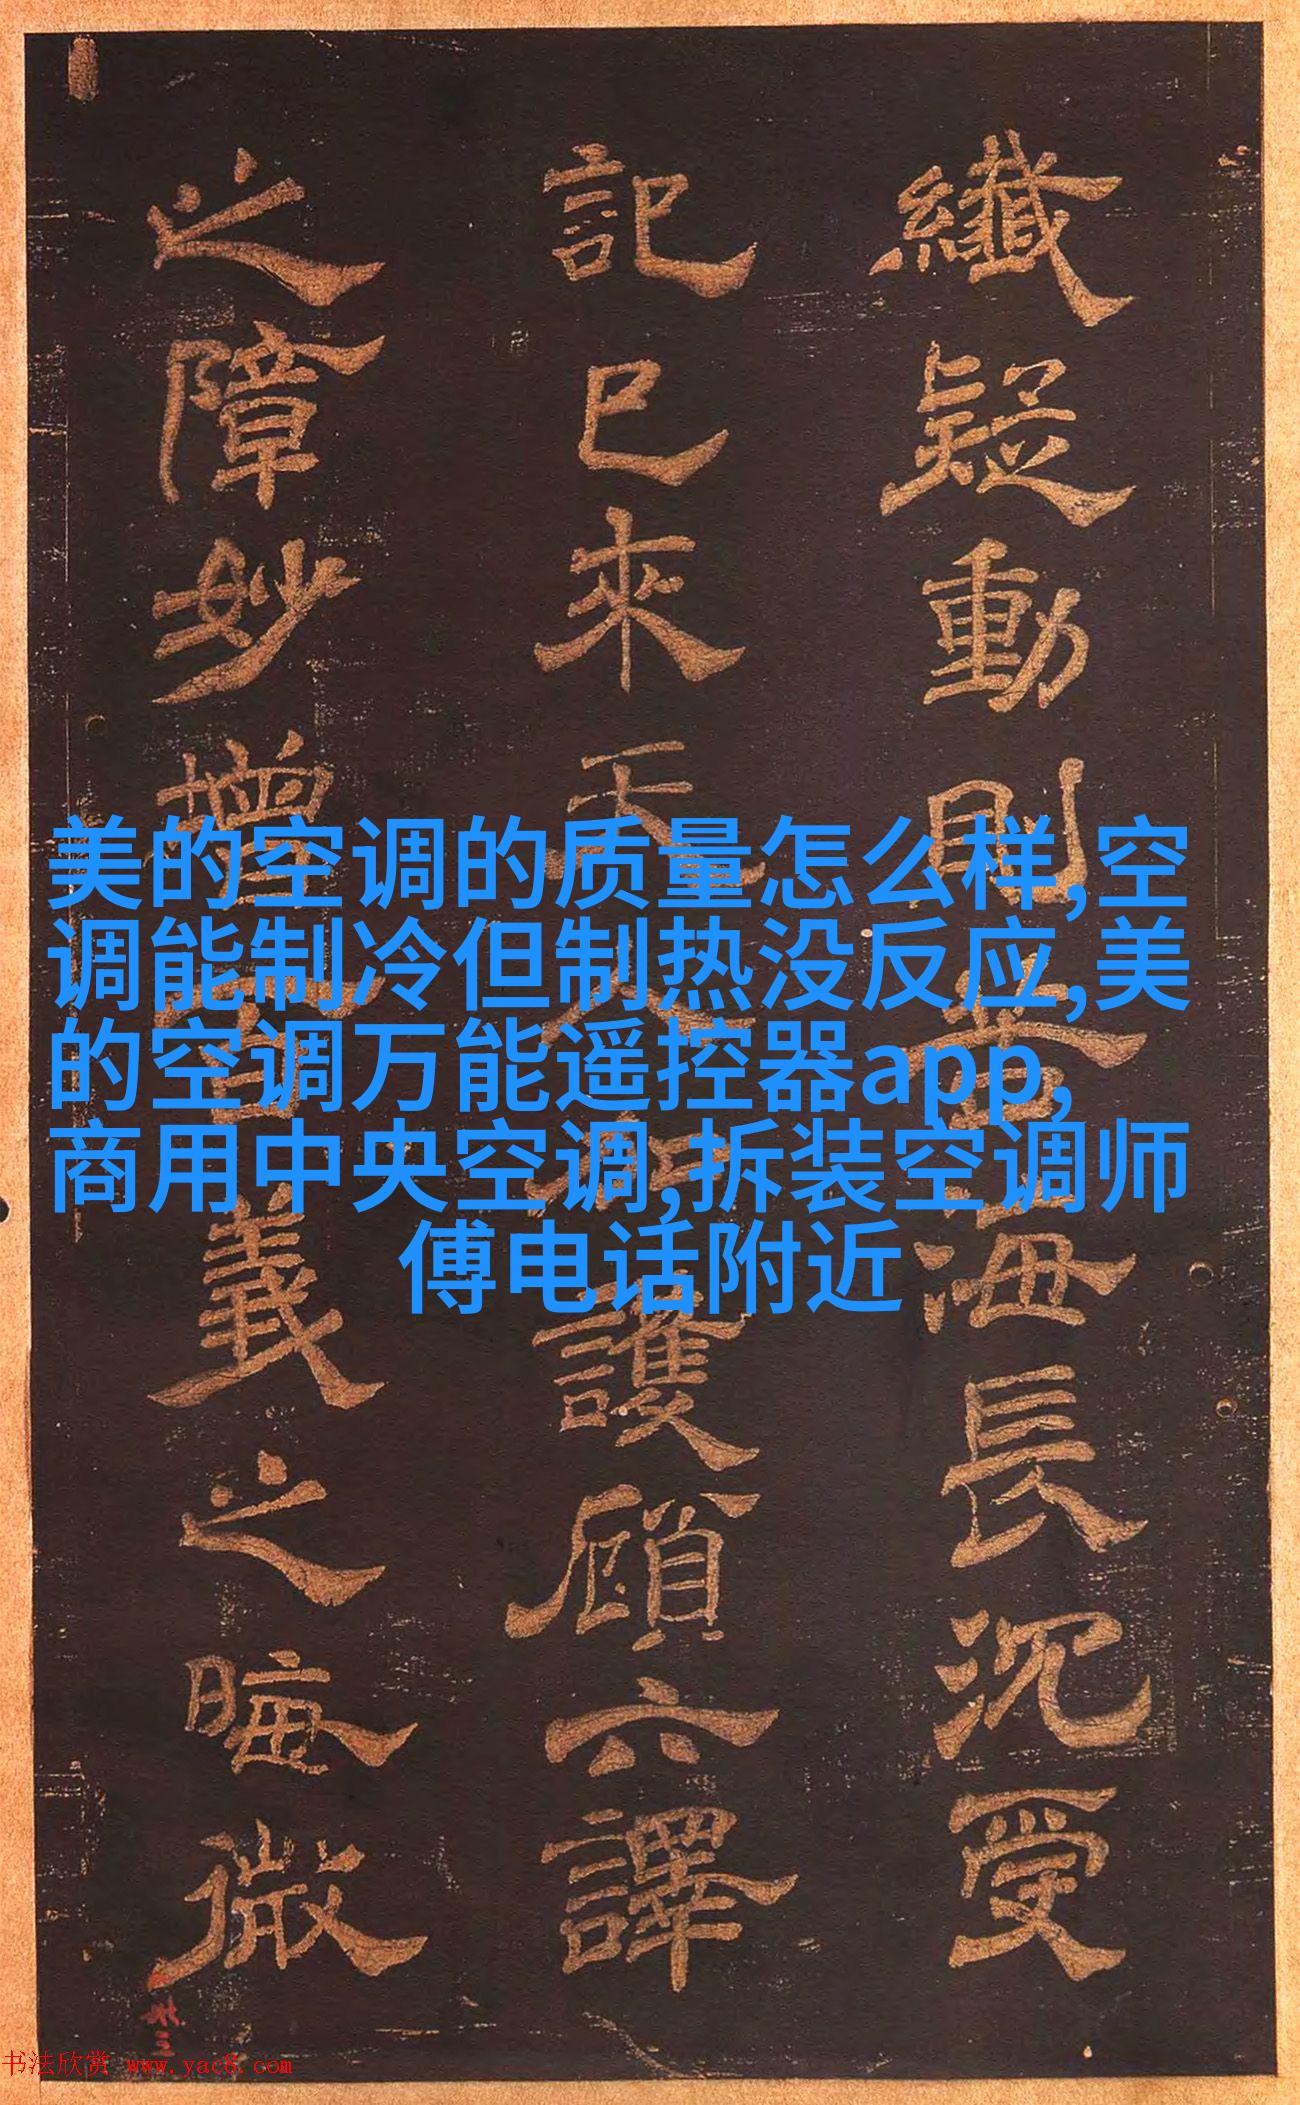 美的空调的质量怎么样,空
调能制冷但制热没反应,美
的空调万能遥控器app,
商用中央空调,拆装空调师
傅电话附近
纖疑動則海長沉受
記已來天護顧六譯
之障妙增義之晦微
书法欣赏 www.yac8.com